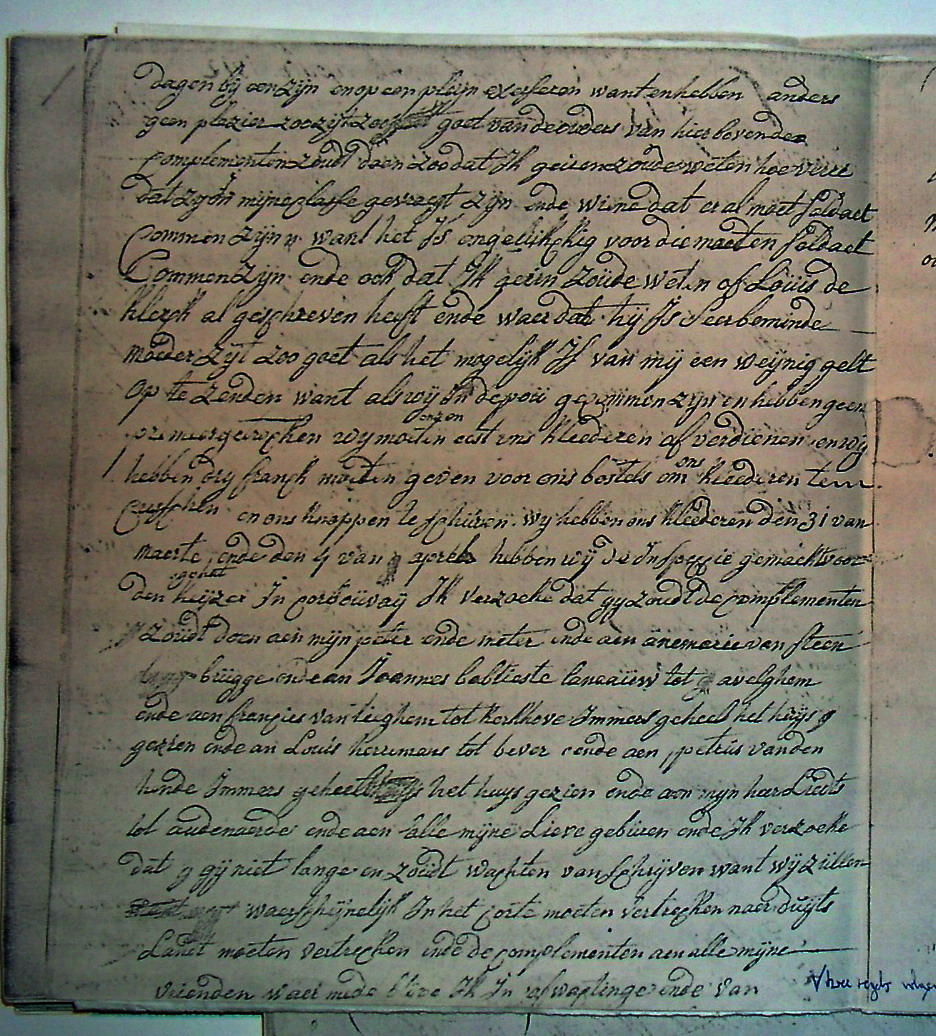 dagen bij een zijn en op een pleijn exerseren want en hebben anders
geen plezier zoo zijt zoo goet van de ouders van hier bovende
complementen zoudt doen zoo dat Ik geiren zoude weten hoe verre
dat zij in mijne classe gevraegt zijn ende wine dat er al moet soldaet
Commen zijn want het Is ongelijkkig voor die moeten soldaet
Commen zijn ende ook dat Ik geirn zoude weten of Louis de
klerck al geschreven heeft ende waer dat hij Is seer beminde
moeder zijt zoo goet als het mogelijk Is van mij een weijnig gelt
op te zenden want als wij In depou gecommen zijn en hebben geen
wij moeten eest ons kleederen af verdienen en wij
hebben dry franck moeten geven voor ons bostels om ons kleederen te
en ons knoppen te schuren. wij hebben ons kleederen den 31 van
maerte ende den 4 van april hebben wij de Inspexie gemackt voor
den keijzer In Ik verzoeke dat gy zoudt de complementen
zoudt doen aen mijn peter ende meter ende aen anemarie van steen
brugge ende an Joannes babtieste laneauw tot avelghem
ende aen franzies van tieghem tot kerkhove Immers geheel het huijs g
gezien ende an Louis herremans tot bever ende aen petrus vanden
hende Immers geheel het huys gezien ende aen mijn har Lieds
tot audenaerde ende aen alle mijne Lieve gebuiren ende Ik verzoeke
dat g gij niet lange en zoudt wachten van schrijven want wij zullen
waerschijnelijk In het corte moeten vertrecken naer duijts
Landt moeten vertrecken ende de complementen aen alle mijne
vrienden waer mede blive Ik In afwagtinge ende van
Twee regels